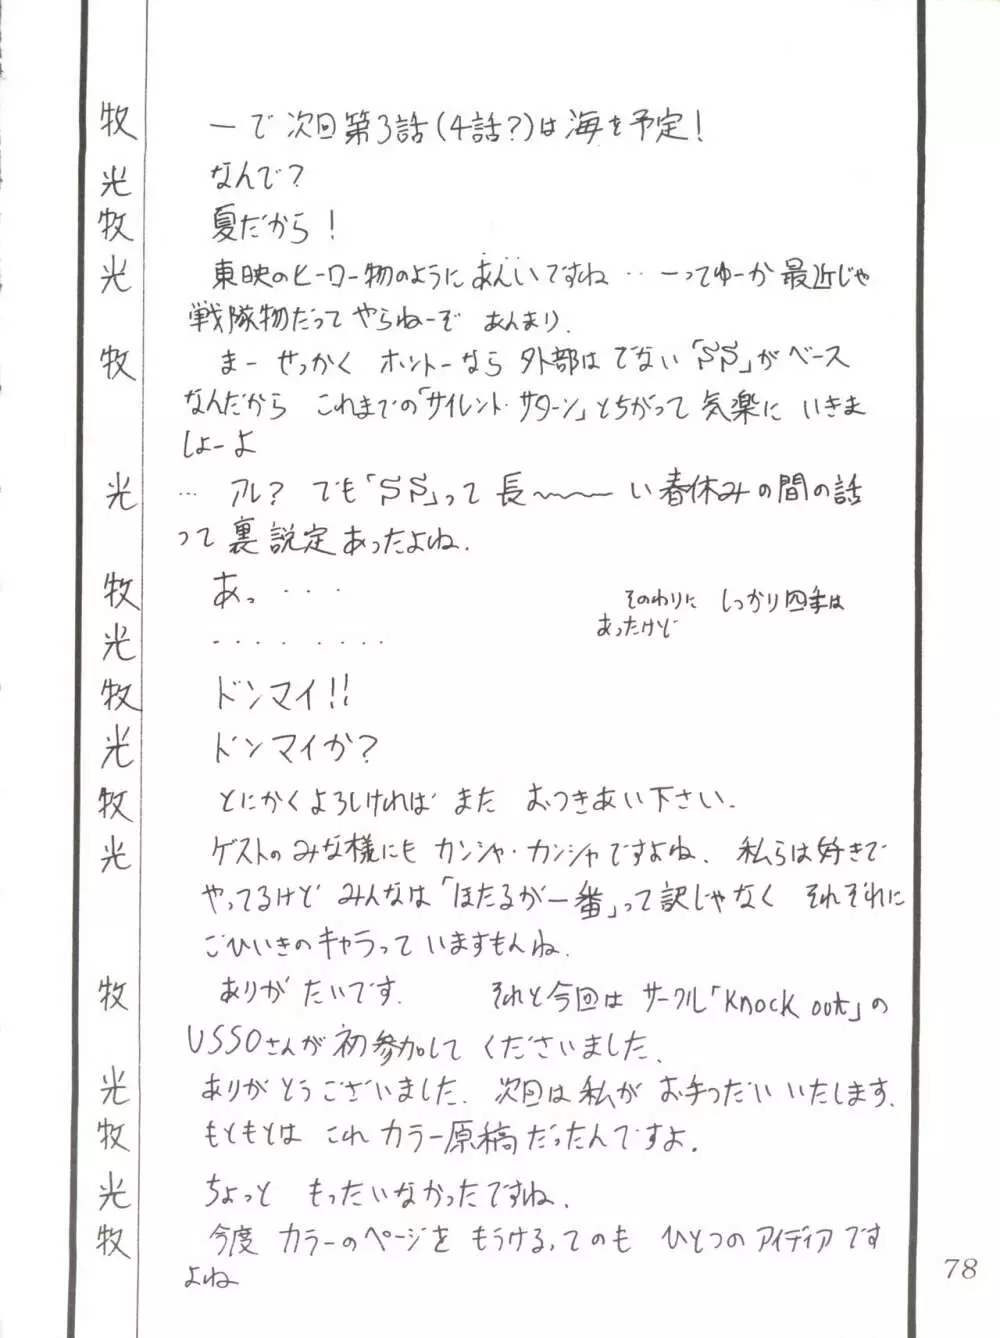 牧 ーで 次回第3話(4話?)は海を予定!
光 なんで?
牧 夏だから!
光 東映のヒーロー物のようにあんいですね…ーってゆーか 最近じゃ
戦隊物だって やらねーぞ あんまり.
牧 まー せっかく ホントーなら 外部はでない「SS」がベース
なんだから これまでの「サイレント・サターン」とちがって 気楽に いきま
しょーよ
光 … アレ? でも「SS」って 長〜〜〜い春休みの間の話
って 裏設定あったよね.
牧 あっ・・・
そのわりに しっかり四季は
あったけど
光 ・・・・・・・・
牧 ドンマイ!!
光 ドンマイか?
牧 とにかくよろしければ また おつきあい下さい.
光 ゲストのみな様にも カンシャ・カンシャですよね. 私らは好きで
やってるけど みんなは「ほたるが一番」って訳じゃなく それぞれに
ごひいきのキャラって いますもんね.
牧 ありがたいです. それと今回は サークル「Knock out」の
USSOさんが初参加して くださいました.
光 ありがとうございました. 次回は私が お手つだい いたします.
牧 もともとは これ カラー原稿だったんですよ.
光 ちょっと もったいなかったですね.
牧 今度 カラーのページを もうける,てのも ひとつのアイディアです
よね
78